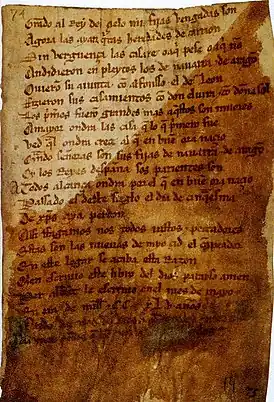 Grado al Rey del çielo mis fijas vengadas son
Agora las ayan qtas heredades de carrion
Sin verguença las casare o aq pese o aq no
Andidieron en pleytos los de nauarra de aragon
Ouieron su aiunta con alfonsso el de leon
Fizieron sus casamientos con don eluira con dona sol
Los pimos fueron grandes mas aqstos son miiores
A mayor ondra las casa q lo q pimero fue
Ved ql ondra creçe al q en buen ora naçio
Quando señoras son sus fijas de nauarra de aragon
Oy los Reyes despaña sos parientes son
A todos alcança ondra por el q en buen ora naçio
Passado es deste sieglo el dia de cinquaesma
De xps aya perdon
Assi ffagamos nos todos iustos peccadores
Estas son las nueuas de myo çid el campeador
En este logar se acaba esta Razon
Quien escriuio este libro del dios parayso amen
Per abbat le escriuio en el mes de mayo
En era de mill CC XLV años